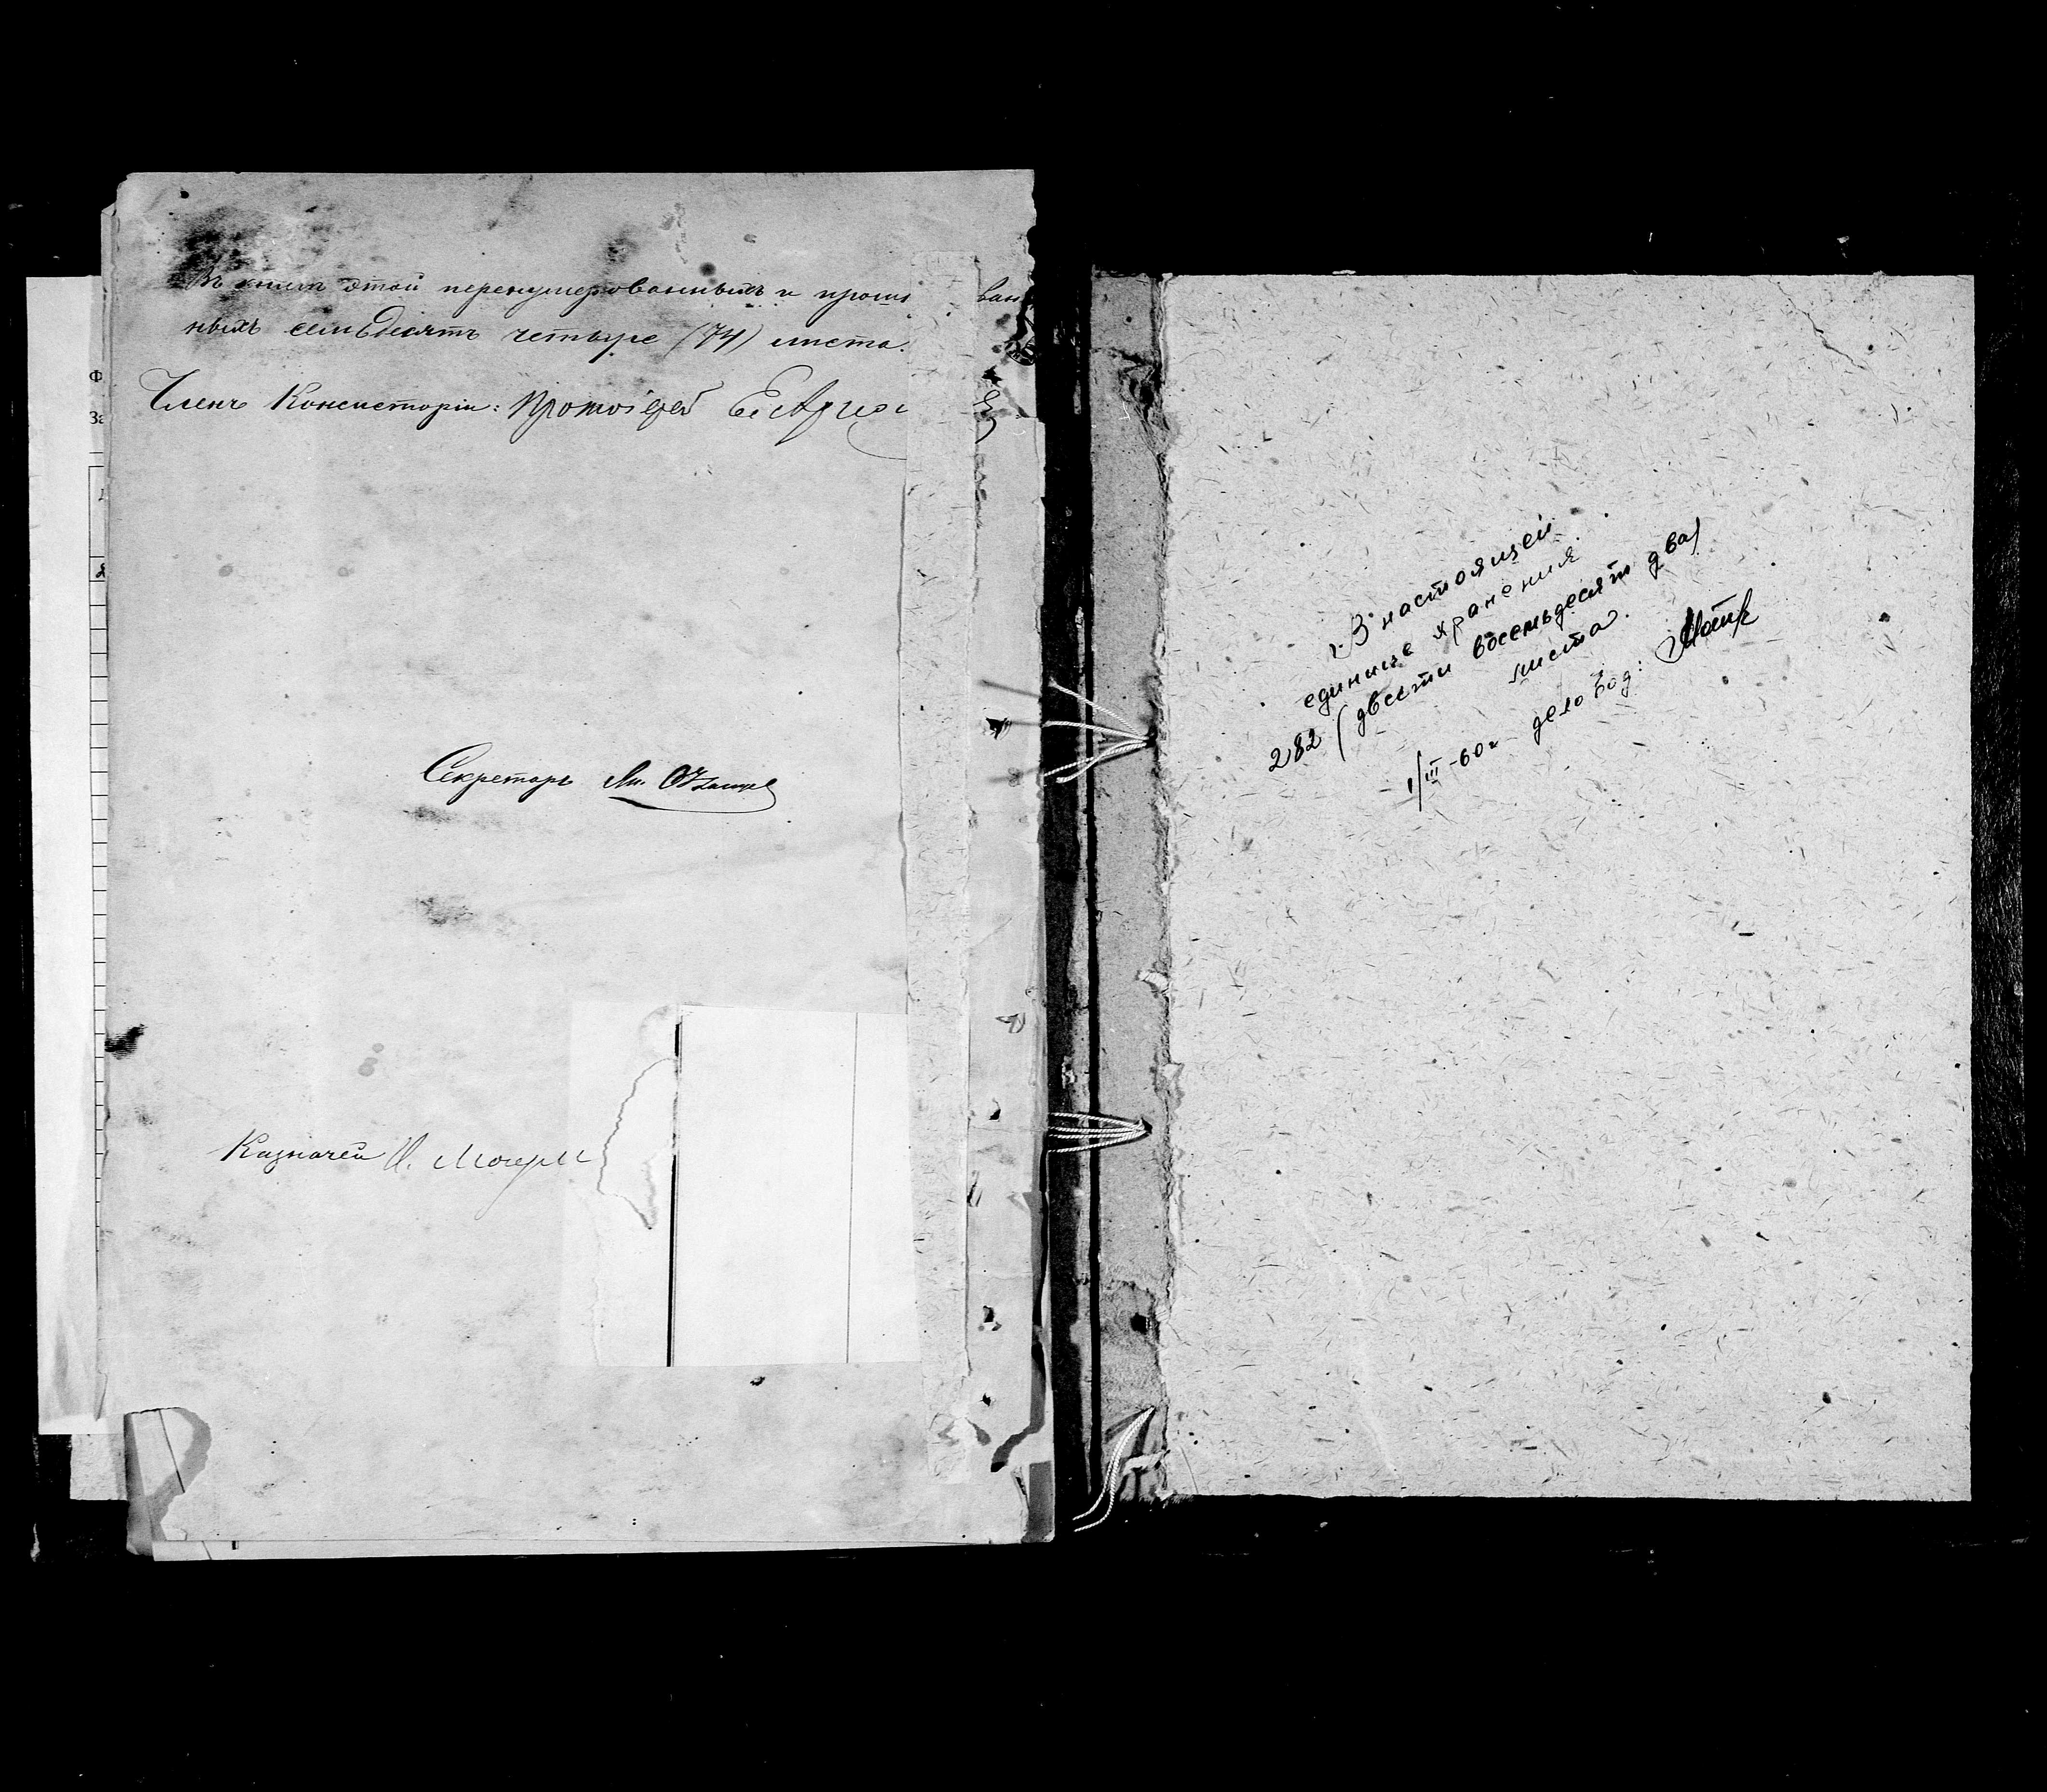 Въ книгѣ этой перенумерованныхъ и прош ван
ныхъ семьдесятъ четыре (74) листа.
Членъ Консисторіи: Протоіерей
Секретарь
Казначей
В настоящей
единице хранения
282 (двести восемьдесят два)
листа.
1/III-60г деловод: